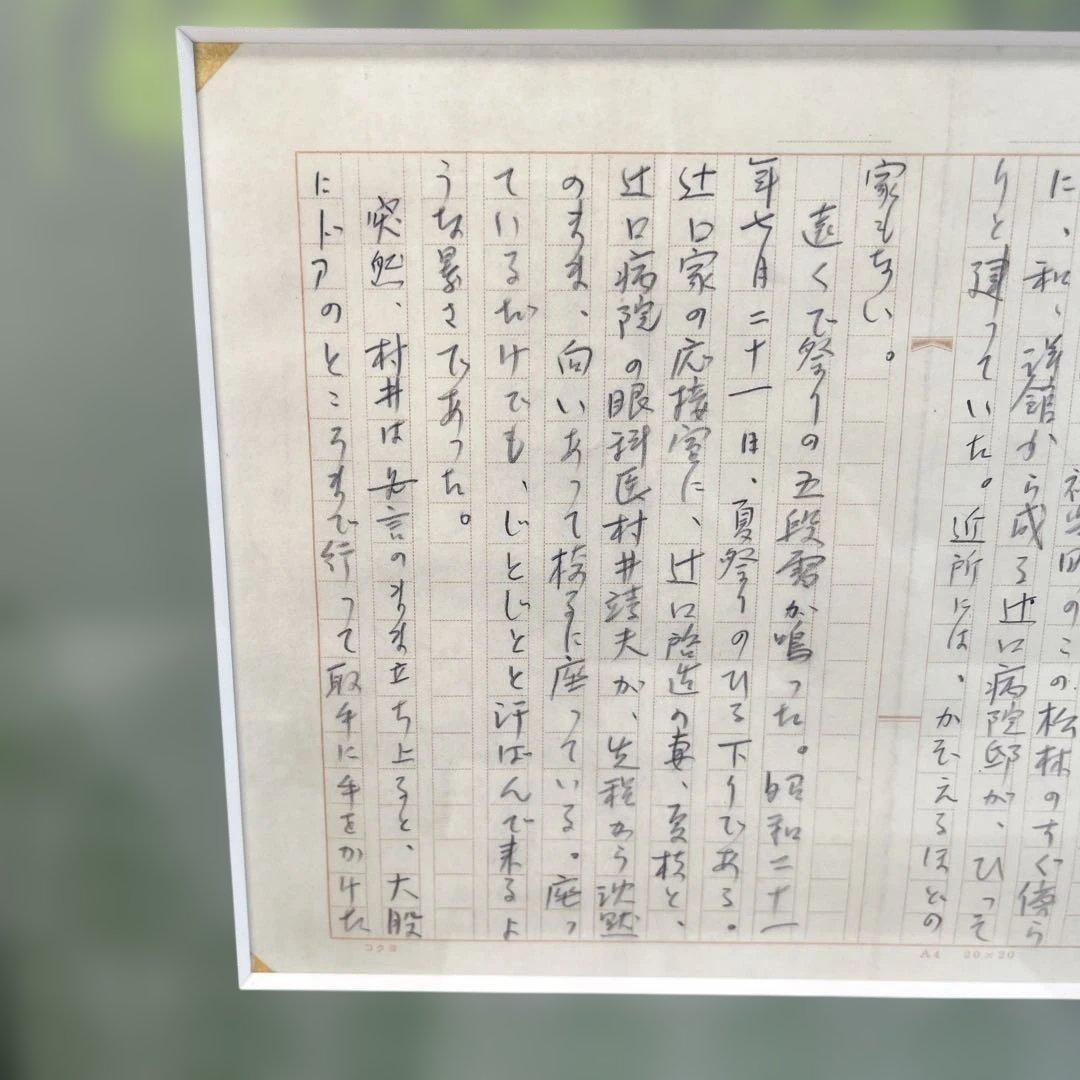 のこの松林のすぐ傍ら
に、和、洋館から成る辻口病院邸が、ひっそ
りと建っていた。近所には、かぞえるほどの
家もない。
遠くで祭りの五段雷が鳴った。昭和二十一
年七月二十一日、夏祭りのひる下りである。
辻口家の応接室に、辻口啓造の妻、夏枝と、
辻口病院の眼科医村井靖夫が、先程から沈黙
のまま、向いあって椅子に座っている。座っ
ているだけでも、じとじとと汗ばんで来るよ
うな暑さであった。
突然、村井は無言のまま立ち上ると、大股
にドアのところまで行って取手に手をかけた
コクヨ
A4 20×20